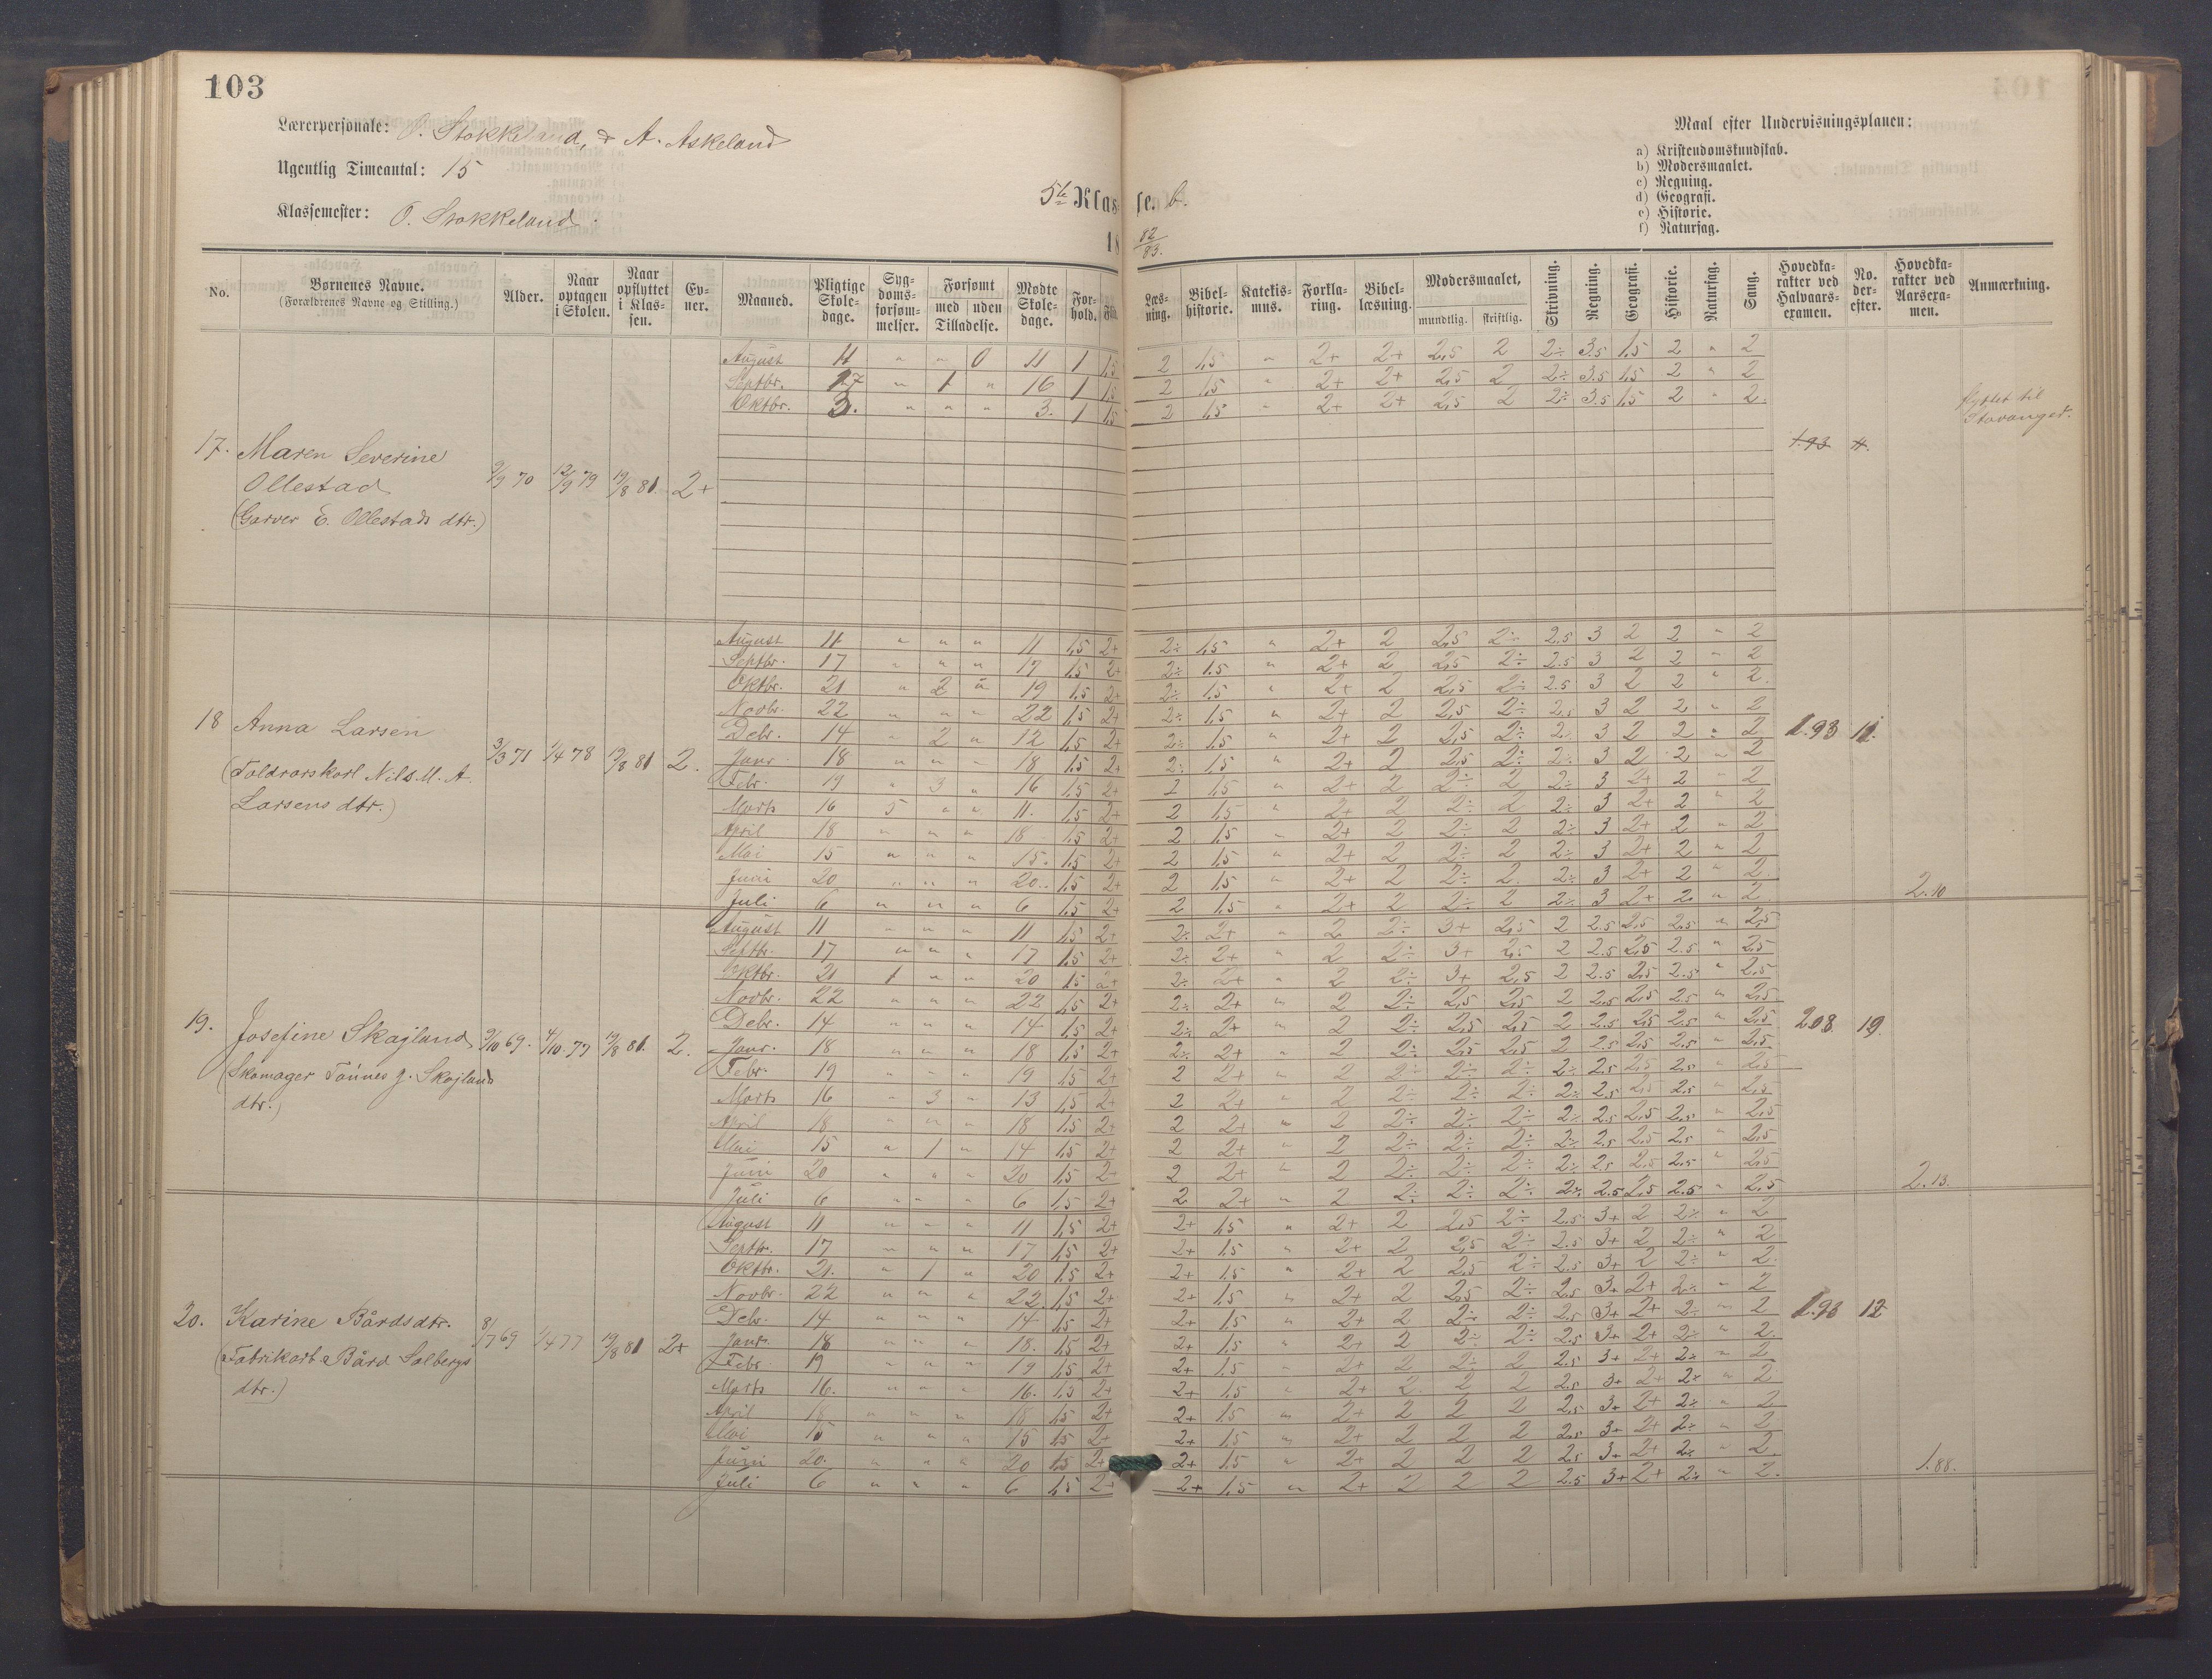 103
Lærerpersonale: O. Stokkeland, & A. Askeland
Ugentlig Timeantal: 15
Klassemester: O. Stokkeland.
5te Klasse. b.
18 82/83.
Maal efter Undervisningsplanen:
a) Kristendomskundskab.
b) Modersmaalet.
c) Regning.
d) Geografi.
e) Historie.
f) Naturfag.
No. | Børnenes Navne. (Forældrenes Navne og Stilling.) | Alder. | Naar optagen i Skolen. | Naar opflyttet i Klassen. | Evner. | Maaned. | Pligtige Skoledage. | Sygdomsforsømmelser. | Forsømt med | uden Tilladelse. | Mødte Skoledage. | Forhold. | Flid. | Læsning. | Bibelhistorie. | Katekismus. | Forklaring. | Bibellæsning. | Modersmaalet, mundtlig. | skriftlig. | Skrivning. | Regning. | Geografi. | Historie. | Naturfag. | Sang. | Hovedkarakter ved Halvaarsexamen. | No. derefter. | Hovedkarakter ved Aarsexamen. | Anmærkning.
August 11 " " 0 11 1 1,5 2 1,5 " 2+ 2+ 2,5 2 2÷ 3.5 1,5 2 " 2
Septbr. 17 " 1 " 16 1 1,5 2 1,5 " 2+ 2+ 2,5 2 2÷ 3.5 1,5 2 " 2
Oktbr. 3. " " " 3. 1 1,5 2 1,5 " 2+ 2+ 2,5 2 2÷ 3.5 1,5 2 " 2.
flyttet til
Stavanger.
17. Maren Severine
Ollestad
(Garver E. Ollestads dtr.)
9/9 70 12/9 79 19/8 81. 2+
1.93 11.
August 11 " " " 11 1,5 2+ 2÷ 1,5 " 2+ 2 2,5 2÷ 2.5 3 2 2 " 2
Septbr. 17 " " " 17 1,5 2+ 2÷ 1.5 " 2+ 2 2,5 2÷ 2.5 3 2 2 " 2
Oktbr. 21 " 2 " 19 1,5 2+ 2÷ 1.5 " 2+ 2 2,5 2÷ 2.5 3 2 2 " 2.
Novbr. 22 " " " 22 1,5 2+ 2÷ 1,5 " 2+ 2 2,5 2÷ 2.5 3 2 2 " 2
Debr. 14 " 2 " 12 1,5 2+ 2÷ 1,5 " 2+ 2 2,5 2÷ 2÷ 3 2 2 " 2
Janr. 18 " " " 18 1,5 2+ 2÷ 1,5 " 2+ 2 2,5 2÷ 2÷ 3 2 2 " 2
Febr. 19 " 3 " 16 1,5 2+ 2 1,5 " 2+ 2 2÷ 2 2÷ 3 2+ 2 " 2
Marts 16 5 " " 11. 1,5 2+ 2 1,5 " 2+ 2 2÷ 2 2÷ 3 2+ 2 " 2
April 18 " " " 18 1,5 2+ 2 1.5 " 2+ 2 2÷ 2 2÷ 3 2+ 2 " 2
Mai 15 " " " 15. 1,5 2+ 2 1,5 " 2+ 2 2÷ 2 2÷ 3 2+ 2 " 2
Juni 20 " " " 20. 1,5 2+ 2 1,5 " 2+ 2 2÷ 2 2÷ 3 2+ 2 " 2.
Juli 6 " " " 6 1,5 2+ 2 1,5 " 2+ 2 2÷ 2 2÷ 3 2+ 2 " 2
18 Anna Larsen
(Toldrorskarl Nils M. A.
Larsens dtr.)
3/3 71 1/4 78 19/8 81 2.
1.93 11. 2.10
August 11 " " " 11 1,5 2+ 2÷ 2+ " 2 2÷ 3+ 2,5 2 2.5 2,5 2,5 " 2,5
Septbr. 17 " " " 17 1,5 2+ 2÷ 2+ " 2 2÷ 3+ 2,5 2 2.5 2,5 2.5 " 2,5
Oktbr. 21 1 " " 20 1,5 2+ 2÷ 2+ " 2 2÷ 3+ 2,5 2 2.5 2,5 2.5 " 2,5
Novbr. 22 " " " 22 1,5 2+ 2÷ 2+ " 2 2÷ 2,5 2,5 2 2,5 2,5 2.5 " 2,5
Debr. 14 " " " 14 1,5 2+ 2÷ 2+ " 2 2÷ 2,5 2,5 2 2.5 2,5 2,5 " 2,5
Janr. 18 " " " 18 1,5 2+ 2÷ 2+ " 2 2÷ 2,5 2,5 2 2.5 2,5 2.5 " 2,5
Febr. 19 " " " 19 1,5 2+ 2 2+ " 2 2÷ 2÷ 2÷ 2÷ 2.5 2,5 2,5 " 2,5
Marts 16 " 3 " 13 1,5 2+ 2 2+ " 2 2÷ 2÷ 2÷ 2÷ 2.5 2,5 2.5 " 2,5
April 18 " " " 18 1,5 2+ 2 2+ " 2 2÷ 2÷ 2÷ 2÷ 2.5 2,5 2.5 " 2,5
Mai 15 " 1 " 14 1,5 2+ 2 2+ " 2 2÷ 2÷ 2÷ 2÷ 2.5 2,5 2.5 " 2,5
Juni 20 " " " 20 1,5 2+ 2 2+ " 2 2÷ 2÷ 2÷ 2÷ 2.5 2,5 2.5 " 2,5
Juli 6 " " " 6 1,5 2+ 2 2+ " 2 2÷ 2÷ 2÷ 2÷ 2.5 2,5 2.5 " 2,5
19. Josefine Skajland
(Skomager Tönnes J. Skajland
dtr.)
9/10 69. 4/10 77 19/8 81. 2.
2.08 19. 2.13.
August 11 " " " 11 1,5 2+ 2+ 1,5 " 2+ 2 2,5 2÷ 2.5 3+ 2 2÷ " 2
Septbr. 17 " " " 17 1,5 2+ 2+ 1.5 " 2+ 2 2,5 2÷ 2.5 3+ 2 2÷ " 2
Oktbr. 21. " 1 " 20 1,5 2+ 2+ 1.5 " 2+ 2 2,5 2÷ 2.5 3+ 2 2÷ " 2.
Novbr. 22 " " " 22. 1,5 2+ 2+ 1,5 " 2+ 2 2,5 2÷ 2,5 3+ 2+ 2÷ " 2
Debr. 14 " " " 14 1,5 2+ 2+ 1,5 " 2+ 2 2÷ 2÷ 2.5 3+ 2+ 2÷ " 2
Janr. 18 " " " 18. 1,5 2+ 2+ 1,5 " 2+ 2 2÷ 2÷ 2.5 3+ 2+ 2÷ " 2.
Febr. 19 " " " 19 1,5 2+ 2+ 1.5 " 2+ 2 2÷ 2 2.5 3+ 2+ 2÷ " 2
Marts 16. " " " 16. 1,5 2+ 2+ 1,5 " 2+ 2. 2 2 2.5 3+ 2+ 2÷ " 2
April 18 " " " 18 1,5 2+ 2+ 1.5 " 2+ 2 2 2 2,5 3+ 2+ 2÷ " 2
Mai 15 " " " 15 1,5 2+ 2+ 1.5 " 2+ 2 2 2 2.5 3+ 2+ 2÷ " 2
Juni 20. " " " 20 1,5 2+ 2+ 1.5 " 2+ 2 2 2 2.5 3+ 2+ 2÷ " 2
Juli 6 " " " 6 1,5 2+ 2+ 1,5 " 2+ 2 2 2 2.5 3+ 2+ 2÷ " 2.
20. Karine Bårdsdtr.
(Fabrikarb. Bård Solbergs
dtr.)
8/7 69 1/4 77 19/8 81 2+
1.98 12 1.88.